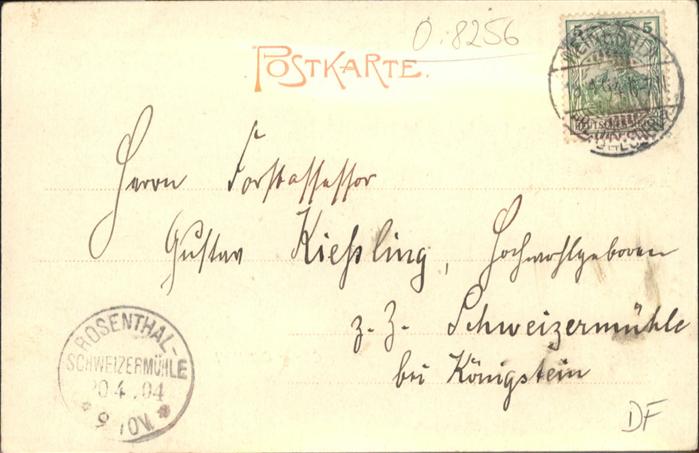 O.8256
POSTKARTE.
5 5
WEINBÖHLA
Herrn Forstassessor
Gustav Kießling, Hochwohlgeboren
z. Z. Schweizermühle
bei Königstein
ROSENTHAL-
SCHWEIZERMÜHLE
20.4.04
9-10V.
DF